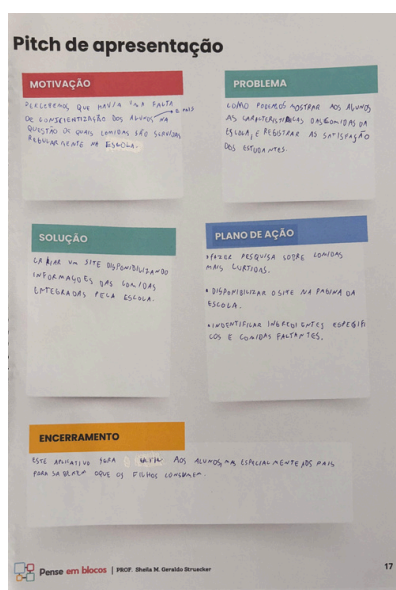 Pitch de apresentação
MOTIVAÇÃO
PERCEBEMOS QUE HAVIA UMA FALTA
DE CONSCIENTIZAÇÃO DOS ALUNOS NA
QUESTÃO DE QUAIS COMIDAS SÃO SERVIDAS
REGULARMENTE NA ESCOLA.
PROBLEMA
COMO PODEMOS MOSTRAR AOS ALUNOS
AS CARACTERISTICAS DAS COMIDAS DA
ESCOLA, E REGISTRAR AS SATISFAÇÃO
DOS ESTUDANTES.
SOLUÇÃO
CRIAR UM SITE DISPONIBILIZANDO
INFORMAÇOES DAS COMIDAS
ENTEGRADAS PELA ESCOLA.
PLANO DE AÇÃO
•FAZER PESQUISA SOBRE COMIDAS
MAIS CURTIDAS.
• DISPONIBILIZAR O SITE NA PAGINA DA
ESCOLA.
•INDENTIFICAR INGREDIENTES
COS E COMIDAS FALTANTES.
ENCERRAMENTO
ESTE APLICATIVO AOS ALUNOS, ESPECIALMENTE AOS PAIS
PARA OQUE OS FILHOS CONSOMEM.
Pense em blocos | PROF. Sheila M. Geraldo Struecker
17